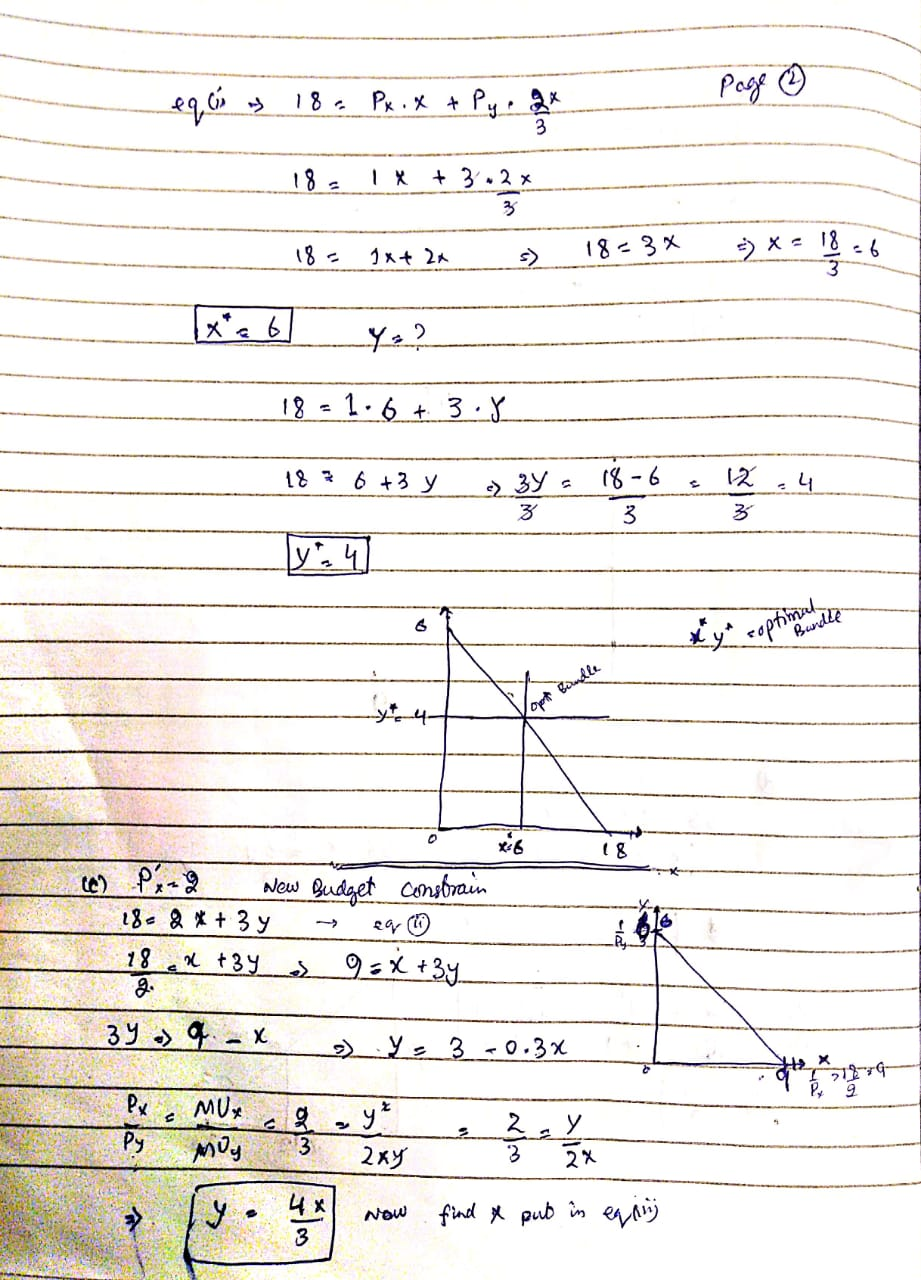 Page ②
eq(i) → 18 = Px . x + Py . 2x/3
18 = 1x + 3 . 2x/3
18 = 1x + 2x ⇒ 18 = 3x ⇒ x = 18/3 = 6
x* = 6 y = ?
18 = 1 . 6 + 3 . y
18 = 6 + 3y ⇒ 3y/3 = 18-6/3 = 12/3 = 4
y* = 4
6
x* y* = optimal Bundle
opt Bundle
y* = 4
0 x=6 18
x
(c) P'x = 2 New Budget Constrain
18 = 2x + 3y → eq (ii)
y
6
18/2 = x + 3y ⇒ 9 = x + 3y
3y ⇒ 9 - x ⇒ y = 3 - 0.3x
0 9 x
I/Px = 18/2 = 9
Px/Py = MUx/MUy = 2/3 = y²/2xy = 2/3 = y/2x
⇒ y = 4x/3 Now find x put in eq(ii)